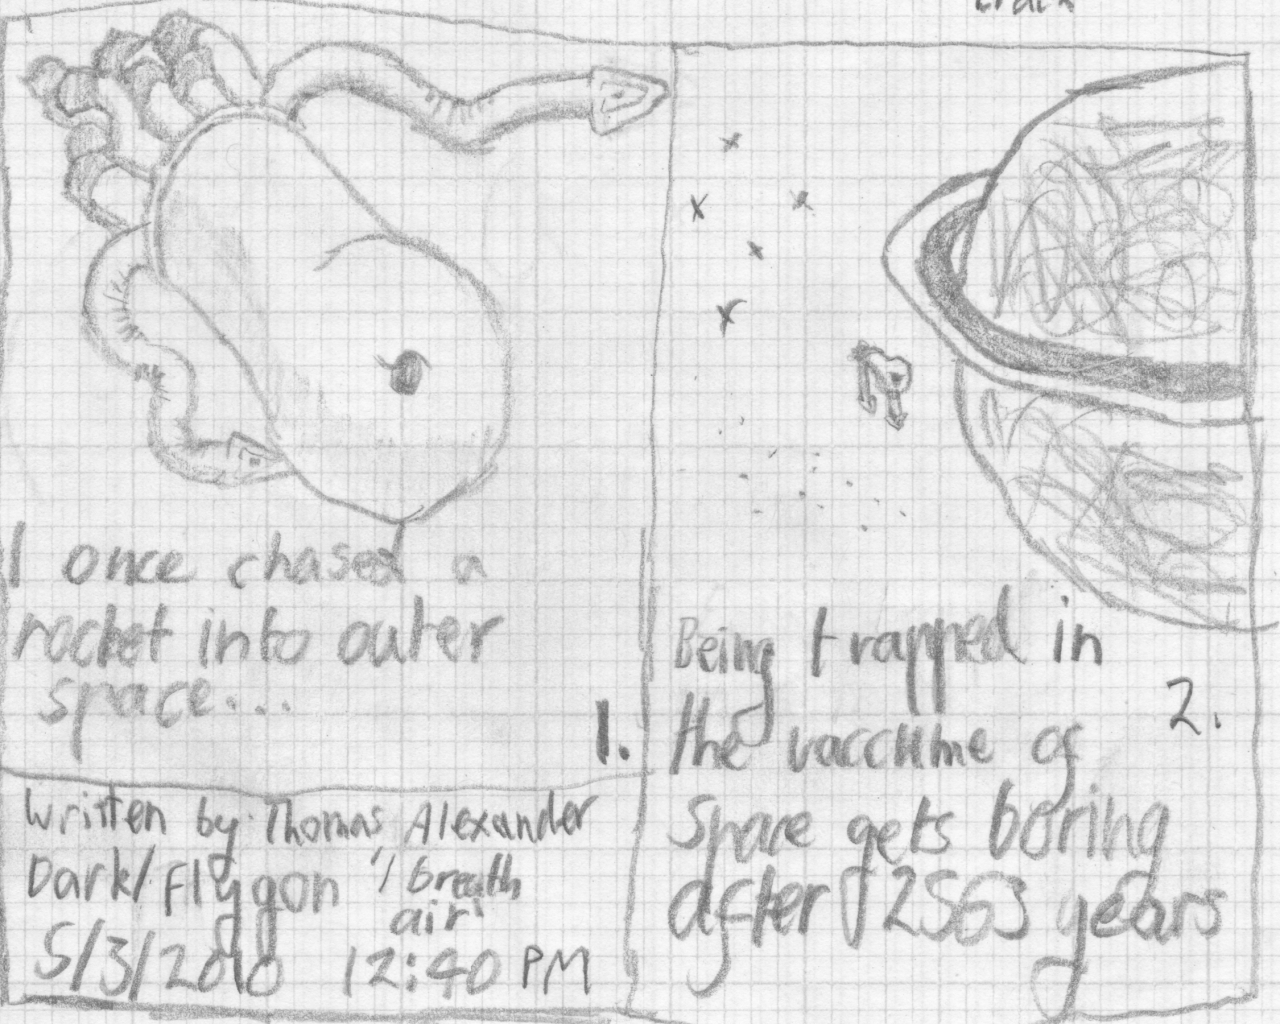 I once chased a
rocket into outer
space...
1.
Written by Thomas Alexander
Dark/Flygon "I breath
air"
5/3/2010 12:40 PM
Being trapped in
the vaccume of
space gets boring
after 2563 years
2.